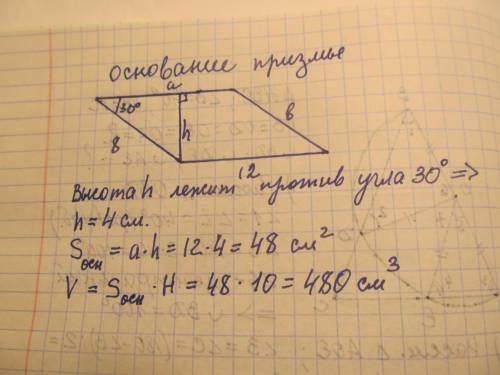 основание призмы
a
30°
8
h
в
12
Высота h лежит против угла 30° =>
h = 4 см.
Sосн = a·h = 12·4 = 48 см²
V = Sосн · H = 48 · 10 = 480 см³